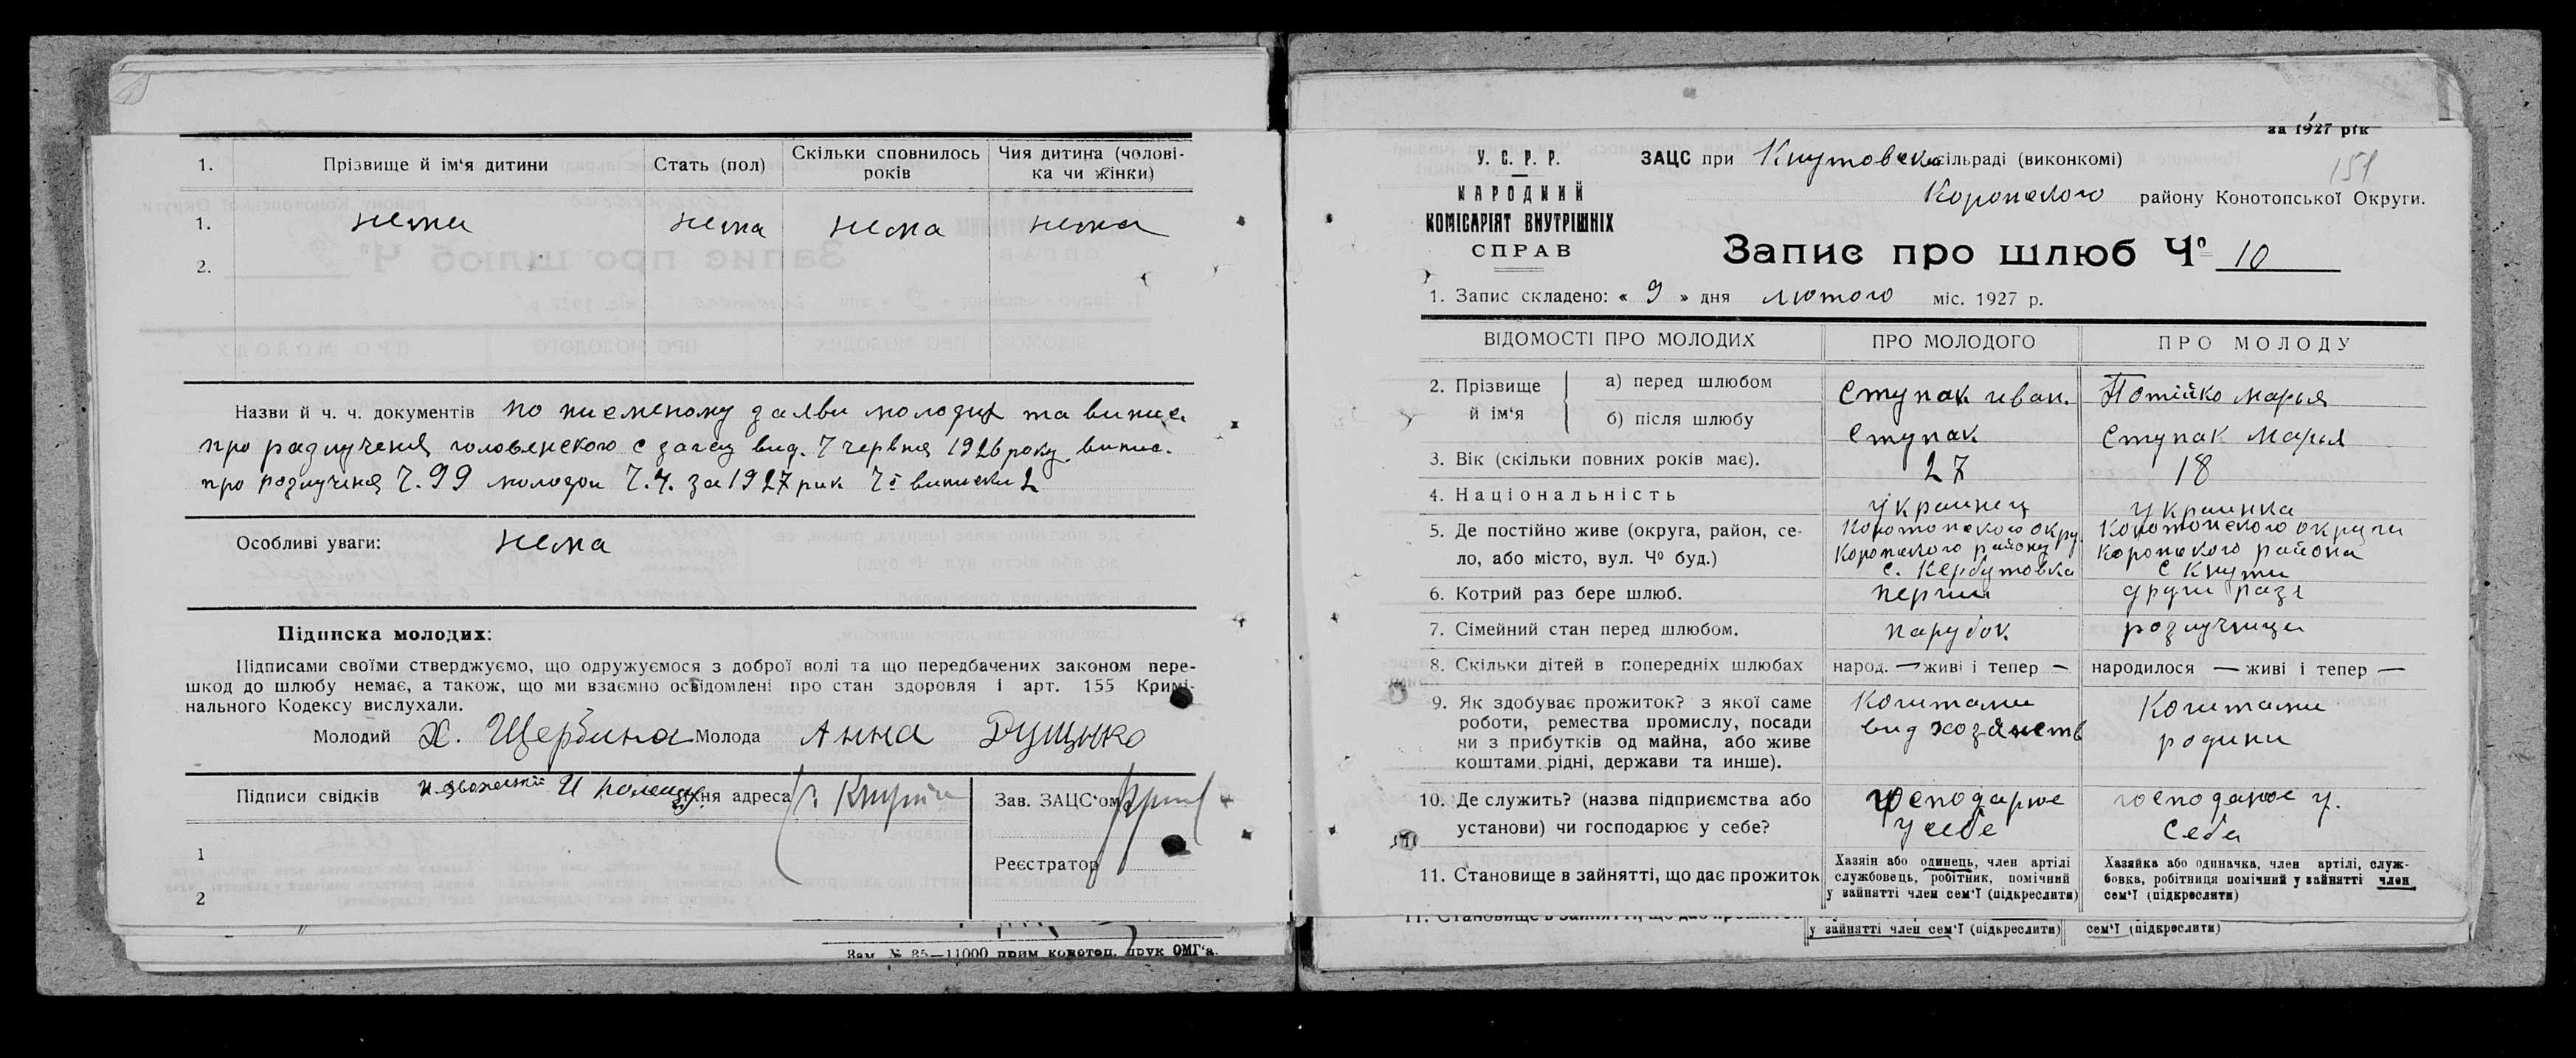 1. Прізвище й ім'я дитини Стать (пол) Скільки сповнилось років Чия дитина (чоловіка чи жінки)
1. нема нема нема нема
2.
Назви й ч. ч. документів по писменому заяви молодих та випис.
про разлученя головенского с загсу вид. 7 червня 1926 року випис.
про розлученя Ч. 99 молодои Ч. 4. за 1927 рик Чі виписки 2
Особливі уваги: нема
Підписка молодих:
Підписами своїми стверджуємо, що одружуємося з доброї волі та що передбачених законом пере-
шкод до шлюбу немає, а також, що ми взаємно освідомлені про стан здоровля і арт. 155 Кримі-
нального Кодексу вислухали.
Молодий Х. Щербина Молода Анна
Підписи свідків їхня адреса с. Кнути Зав. ЗАЦС'ом
1 Реєстратор
2
Зам. № 35—11000 прим конотоп. друк ОМГ'а.
за 1927 рік
151
У. С. Р. Р.
НАРОДНИЙ
КОМІСАРІЯТ ВНУТРІШНІХ
СПРАВ
ЗАЦС при Кнутовскй сільраді (виконкомі)
Коропского району Конотопської Округи.
Запис про шлюб Чо 10
1. Запис складено: « 9 » дня лютого міс. 1927 р.
ВІДОМОСТІ ПРО МОЛОДИХ ПРО МОЛОДОГО ПРО МОЛОДУ
2. Прізвище й ім'я а) перед шлюбом Ступак иван. Потійко Марья
б) після шлюбу Ступак Ступак Марья
3. Вік (скільки повних років має). 27 18
4. Національність украинец украинка
5. Де постійно живе (округа, район, се-
ло, або місто, вул. Чо буд.)
Конотопского окру.
Коропского району
с. Кербутовка
Конотопского округи
Коропского района
с Кнути
6. Котрий раз бере шлюб. перши други раз
7. Сімейний стан перед шлюбом. парубок. розлучница
8. Скільки дітей в попередніх шлюбах народ. — живі і тепер — народилося — живі і тепер —
9. Як здобуває прожиток? з якої саме
роботи, ремества промислу, посади
чи з прибутків од майна, або живе
коштами рідні, держави та инше).
Коштами
вид хозяиств
Коштами
родини
10. Де служить? (назва підприємства або
установи) чи господарює у себе?
господарює
у себе
господарює у.
себе
11. Становище в зайнятті, що дає прожиток
Хазяїн або одинець, член артілі
службовець, робітник, помічний
у зайнятті член сем'ї (підкреслити)
Хазяйка або одиначка, член артілі, служ-
бовка, робітниця помічний у зайнятті член
сем'ї (підкреслити)
11. Становище в зайнятті, що дає прожиток
у зайнятті член сем'ї (підкреслити) сем'ї (підкреслити)